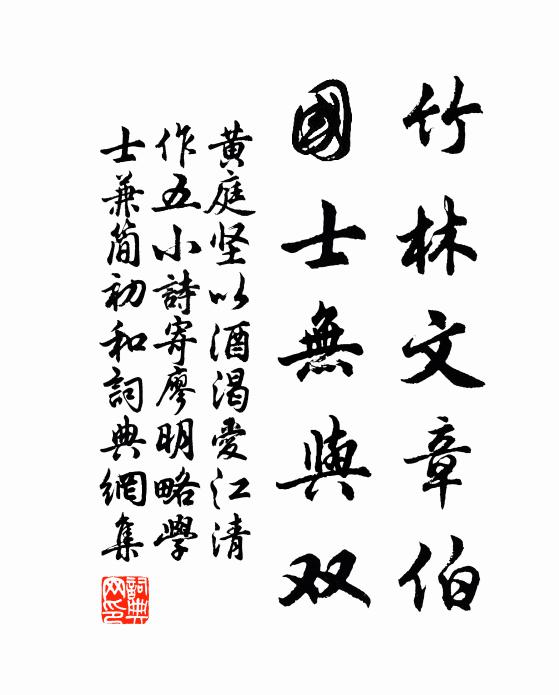 竹林文章伯
國士無與双
黄庭坚以酒渴愛江清
作五小詩寄廖明略學
士兼简初和詞典網集
詞典网印